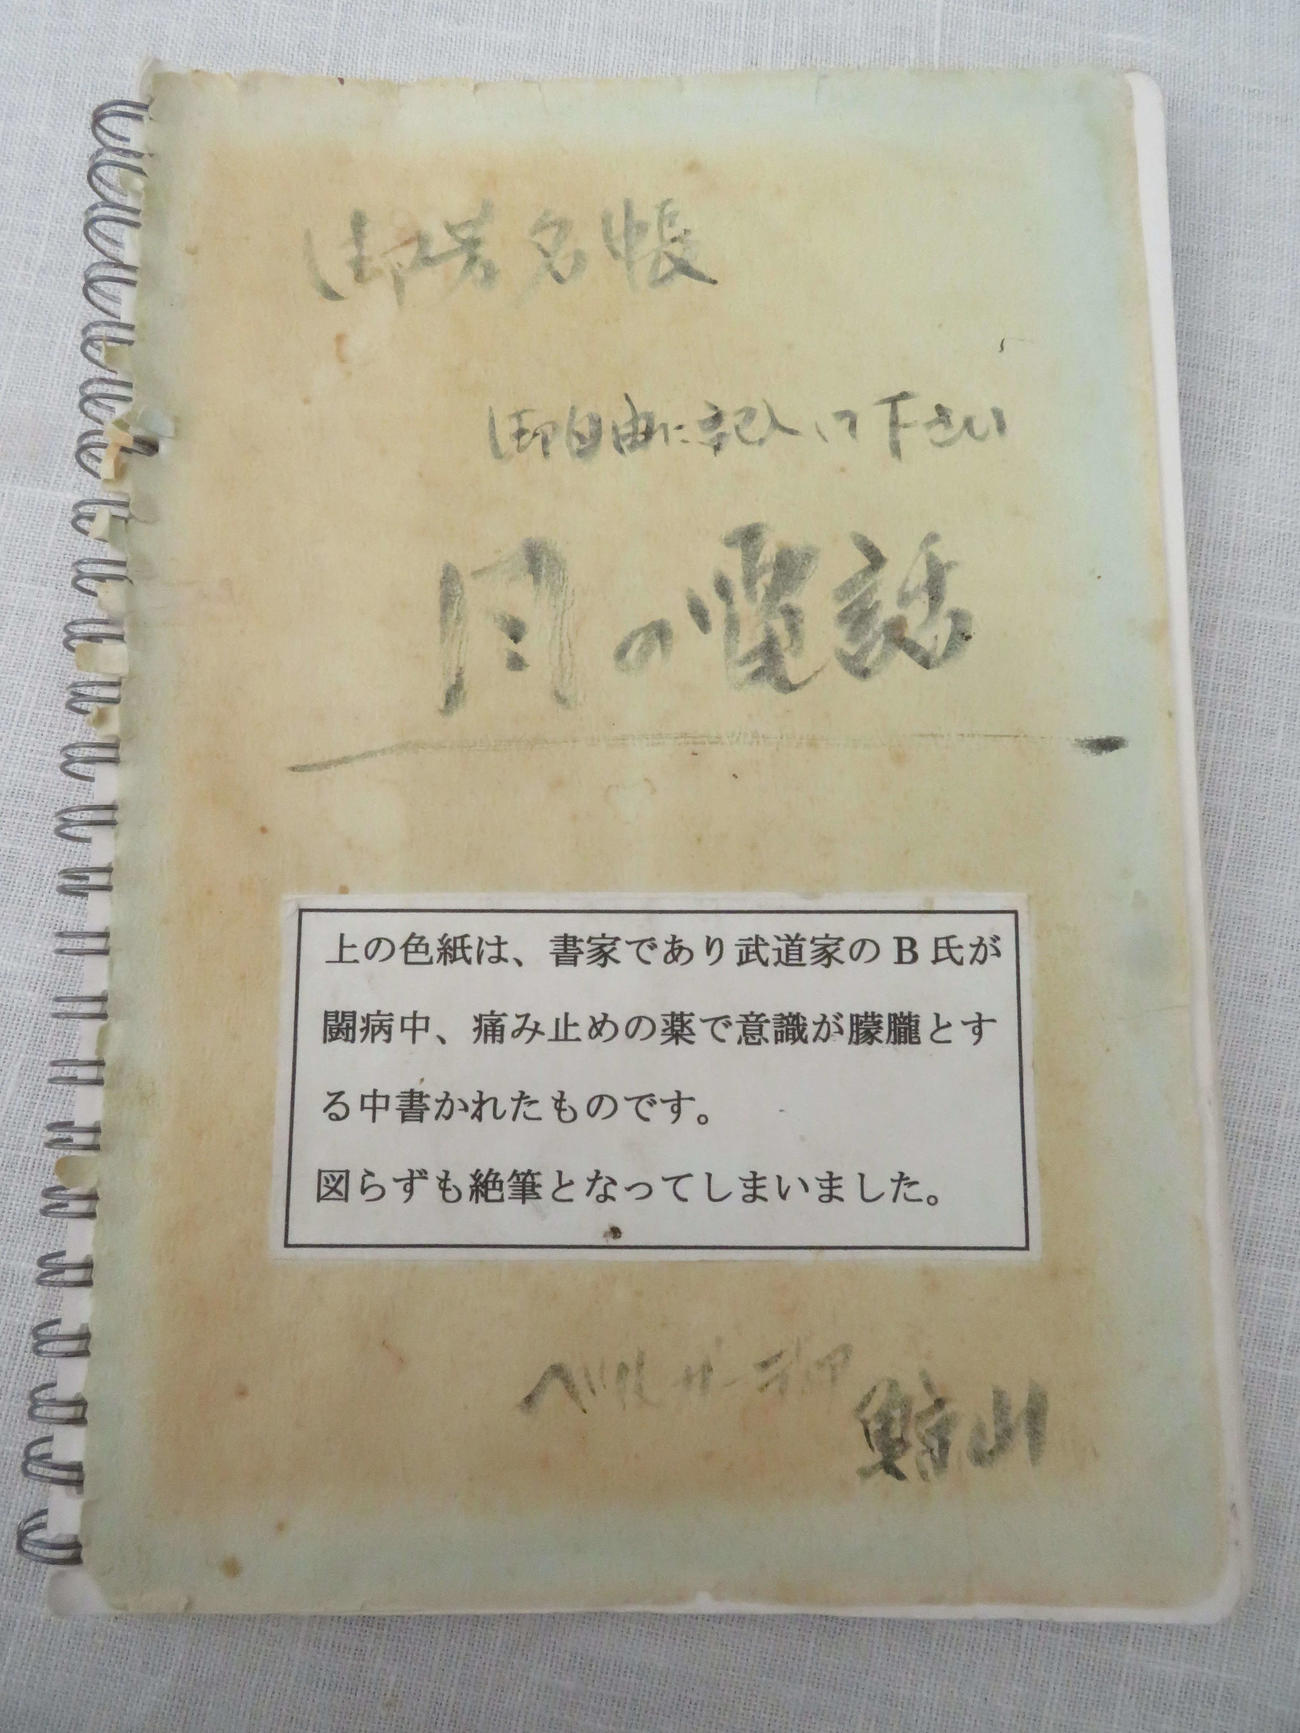 御芳名帳
御自由に記入して下さい
風の電話
上の色紙は、書家であり武道家のB氏が
闘病中、痛み止めの薬で意識が朦朧とす
る中書かれたものです。
図らずも絶筆となってしまいました。
ベルガーディア
鯨山